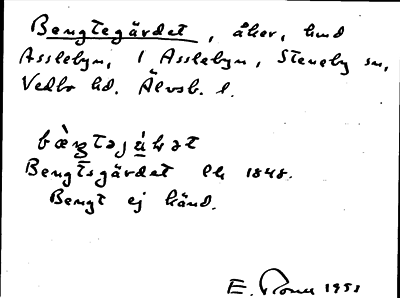 Bengtegärdet, åker, hmd
Asslebyn, 1 Asslebyn, Steneby sn,
Vedbo hd. Älvsb. l.
Bengtsgärdet Lk 1848.
Bengt ej känd.
E. 1951